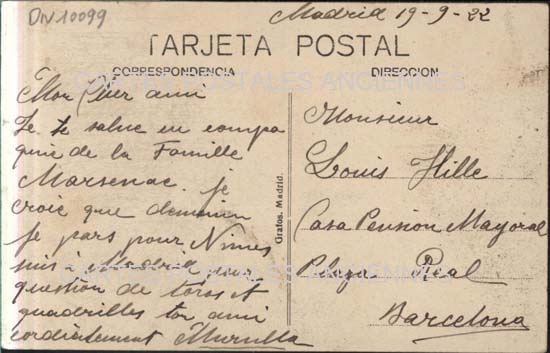 DIV10099
Madrid 19-9-22
TARJETA POSTAL
CORRESPONDENCIA
DIRECCION
CARTES POSTALES ANCIENNES
Mon cher ami
Je te salue en compa
gnie de la Famille
Marsenac. je
croie que demmien
je pars pour Nimes
suis à Madrid pour
question de toros et
quadrilles ton ami
cordialement
Monsieur
Louis Hille
Casa Pension Mayoral
Plaza Real
Barcelona
Grafos. Madrid.
CARTES POSTALES ANCIENNES